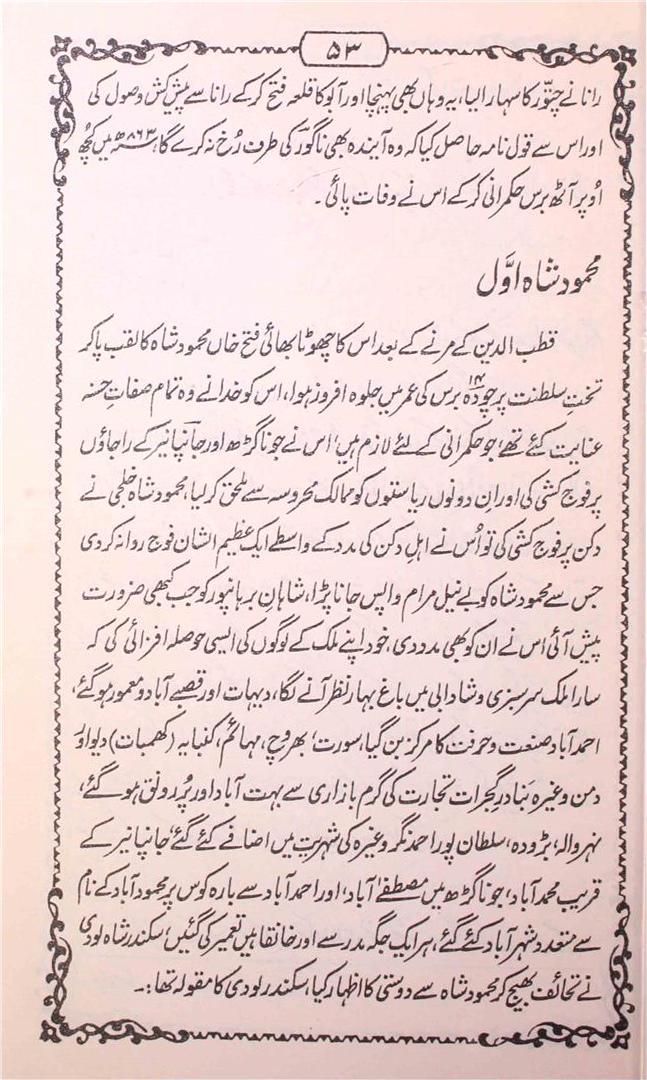 ۵۳
رانا نے چتوڑ کا سہارا لیا، یہ وہاں بھی پہنچا اور آبو کا قلعہ فتح کر کے رانا سے پیش کش وصول کی
اور اس سے قول نامہ حاصل کیا کہ وہ آیندہ بھی ناگور کی طرف رُخ نہ کرے گا، ۸۶۳ھ میں کچھ
اُوپر آٹھ برس حکمرانی کر کے اس نے وفات پائی۔
محمود شاہ اوَّل
قطب الدین کے مرنے کے بعد اس کا چھوٹا بھائی فتح خاں محمود شاہ کا لقب پا کر
تختِ سلطنت پر چودہ ۱۴ برس کی عمر میں جلوہ افروز ہوا، اس کو خدا نے وہ تمام صفاتِ حسنہ
عنایت کئے تھے، جو حکمرانی کے لئے لازم ہیں، اس نے جونا گڑھ اور جانپانیر کے راجاؤں
پر فوج کشی کی اور ان دونوں ریاستوں کو ممالک محروسہ سے ملحق کر لیا، محمود شاہ خلجی نے
دکن پر فوج کشی کی تو اُس نے اہلِ دکن کی مدد کے واسطے ایک عظیم الشان فوج روانہ کر دی
جس سے محمود شاہ کو بے نیل مرام واپس جانا پڑا، شاہانِ برہانپور کو جب کبھی ضرورت
پیش آئی اس نے ان کو بھی مدد دی، خود اپنے ملک کے لوگوں کی ایسی حوصلہ افزائی کی کہ
سارا ملک سرسبزی و شادابی میں باغ بہار نظر آنے لگا، دیہات اور قصبے آباد و معمور ہو گئے،
احمد آباد صنعت و حرفت کا مرکز بن گیا، سورت، بھروچ، مہائم، کنبایہ (کھمبات) دیو اور
دمن وغیرہ بنادرِ گجرات تجارت کی گرم بازاری سے بہت آباد اور پُر رونق ہو گئے،
نہروالہ، بڑودہ، سلطان پور احمد نگر وغیرہ کی شہریت میں اضافے کئے گئے، جانپانیر کے
قریب محمد آباد، جونا گڑھ میں مصطفےٰ آباد، اور احمد آباد سے بارہ کوس پر محمود آباد کے نام
سے متعدد شہر آباد کئے گئے، ہر ایک جگہ مدرسے اور خانقاہیں تعمیر کی گئیں، سکندر شاہ لودی
نے تحائف بھیج کر محمود شاہ سے دوستی کا اظہار کیا، سکندر لودی کا مقولہ تھا:۔